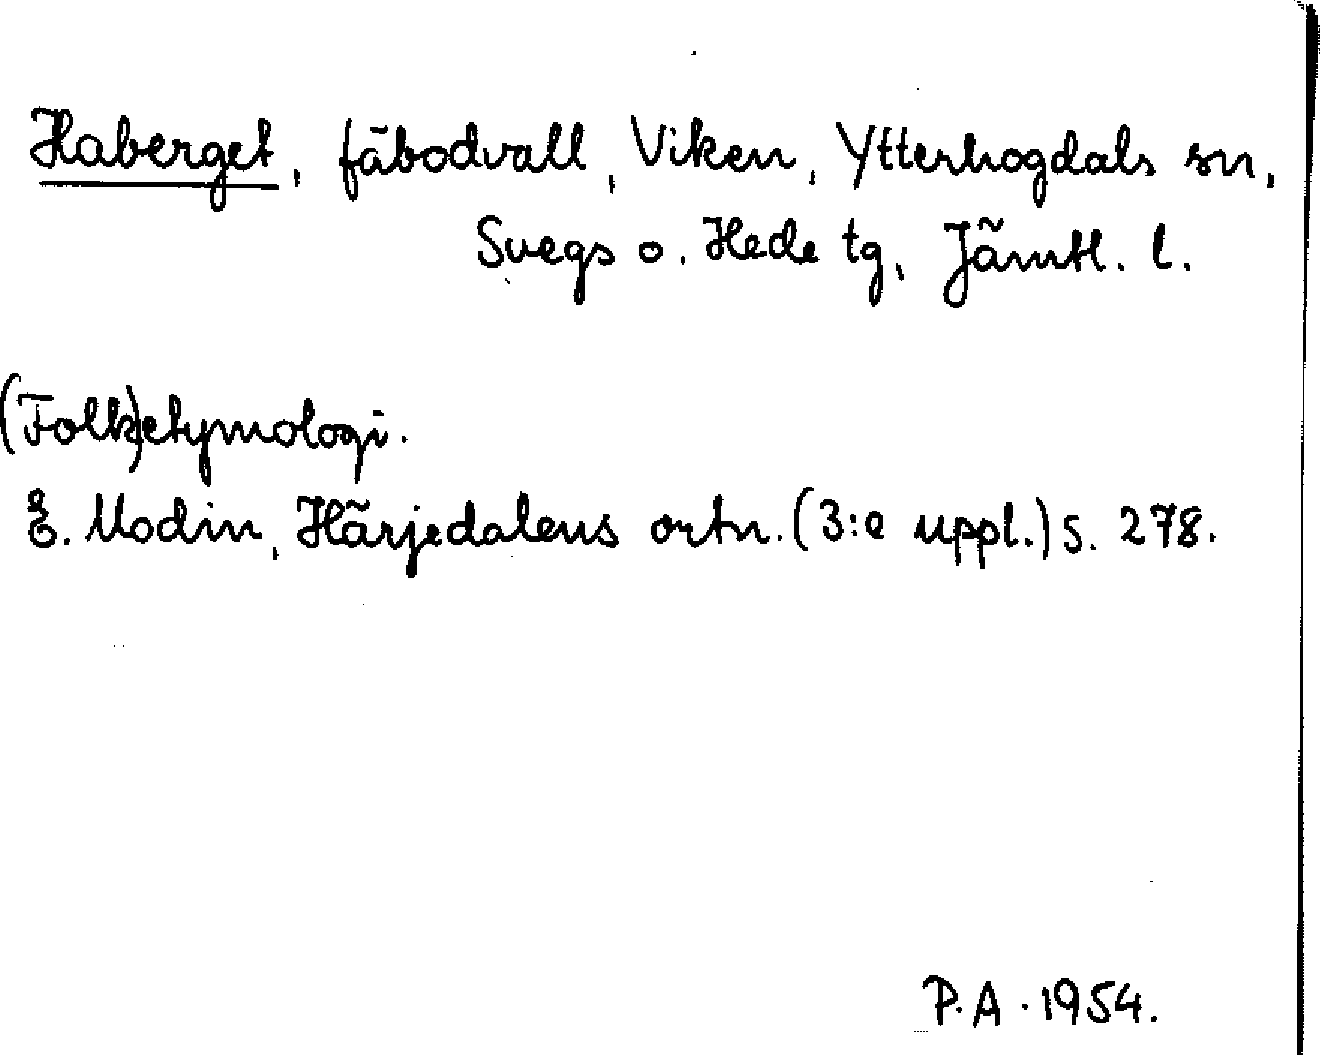 Haberget, fäbodvall, Viken, Ytterhogdals sn,
Svegs o. Hede tg, Jämtl. l.
(Folk)etymologi.
E. Modin, Härjedalens ortn. (3:e uppl.) s. 278.
P.A. 1954.